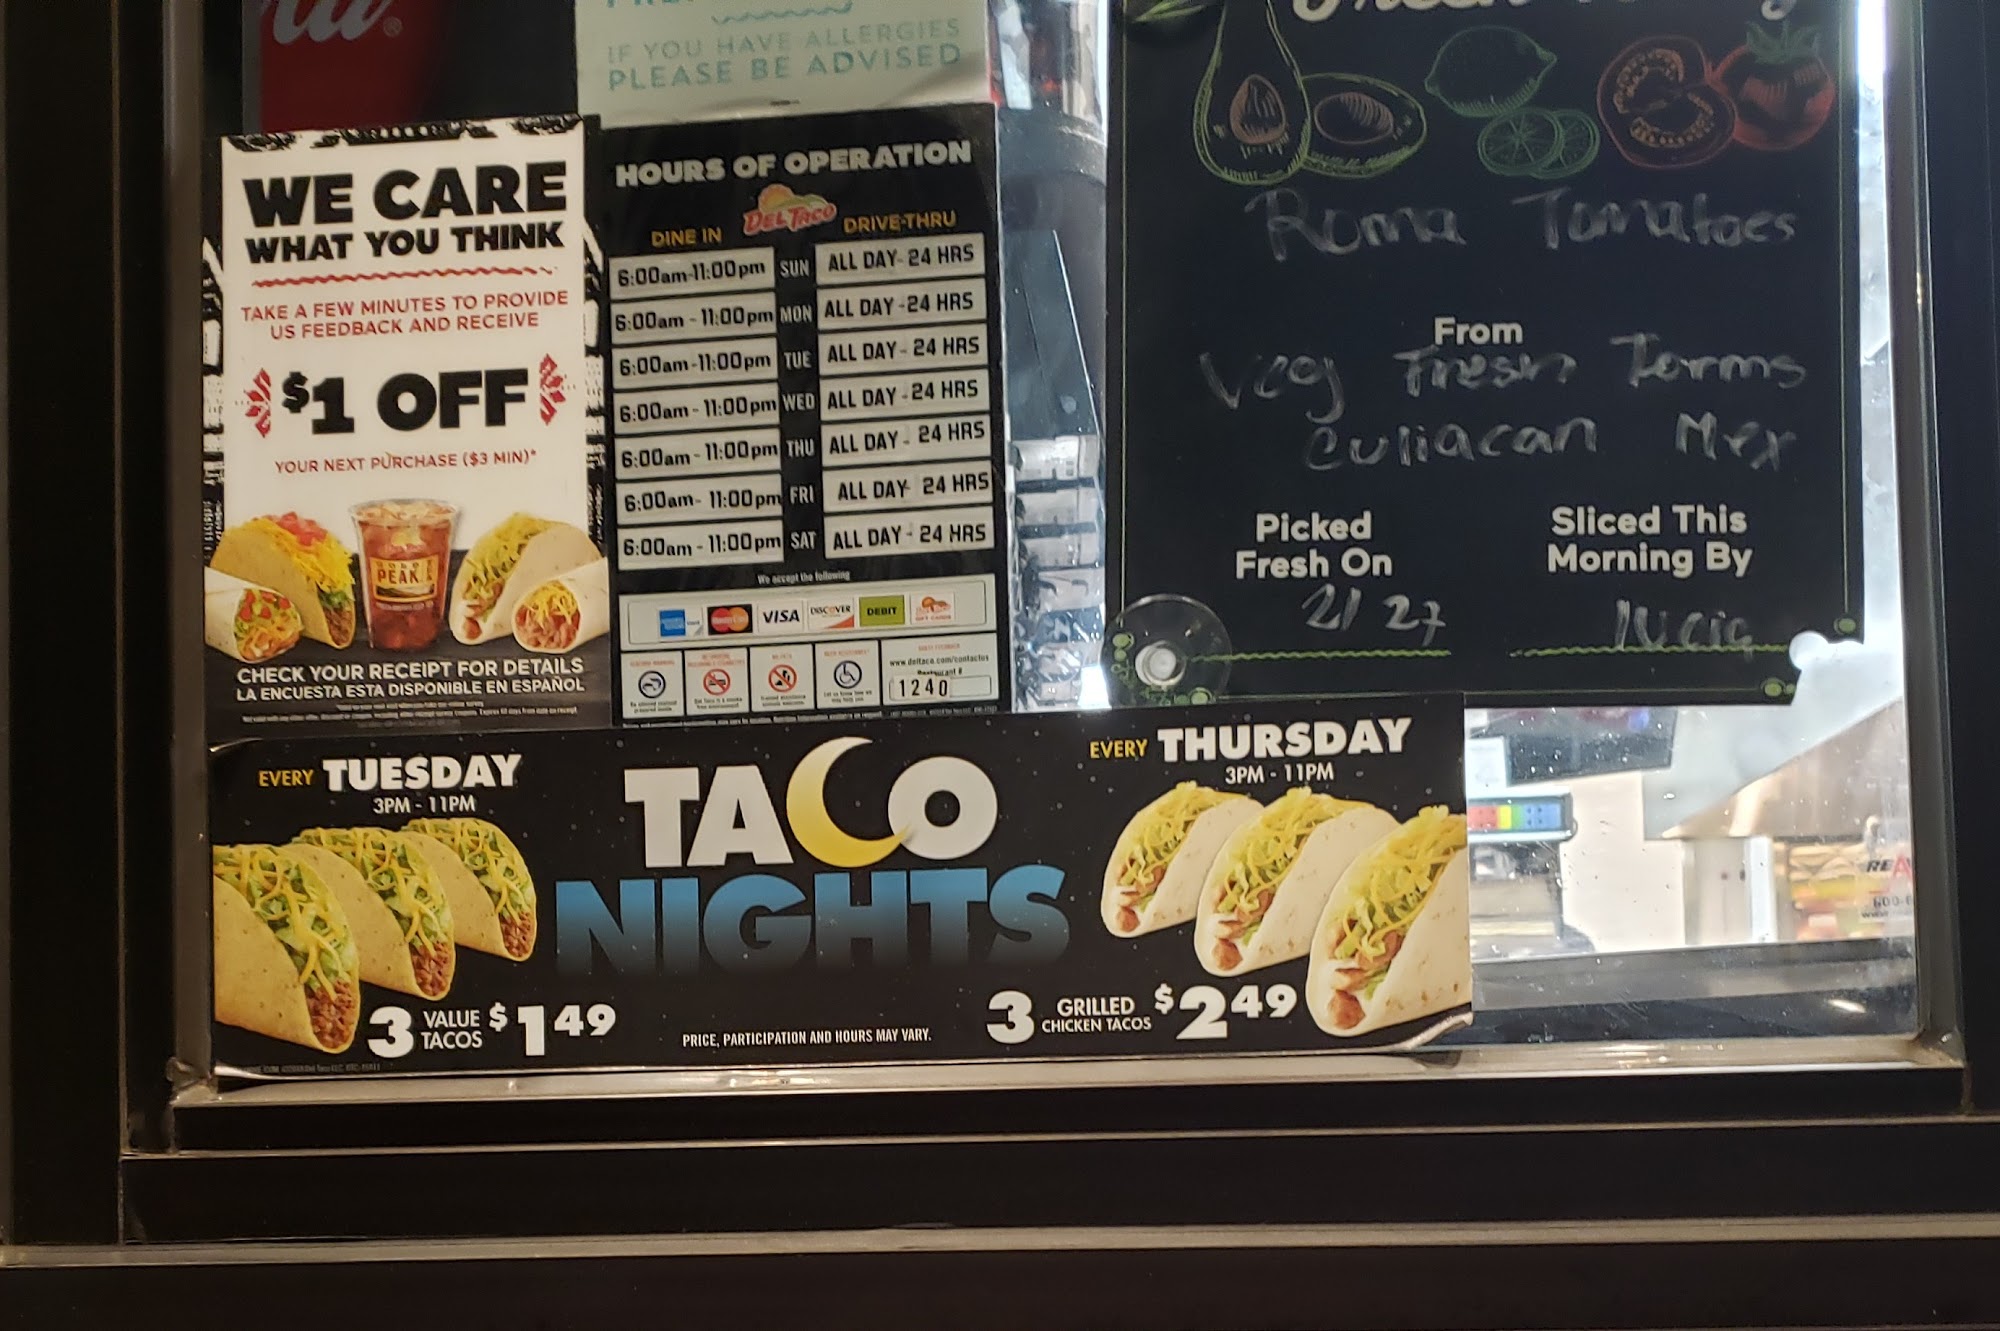 IF YOU HAVE ALLERGIES
PLEASE BE ADVISED
WE CARE
WHAT YOU THINK
TAKE A FEW MINUTES TO PROVIDE
US FEEDBACK AND RECEIVE
$1 OFF
YOUR NEXT PURCHASE ($3 MIN)*
GOLD
PEAK
CHECK YOUR RECEIPT FOR DETAILS
LA ENCUESTA ESTA DISPONIBLE EN ESPAÑOL
HOURS OF OPERATION
DEL TACO
DINE IN DRIVE-THRU
6:00am-11:00pm SUN ALL DAY-24 HRS
6:00am-11:00pm MON ALL DAY-24 HRS
6:00am-11:00pm TUE ALL DAY-24 HRS
6:00am-11:00pm WED ALL DAY-24 HRS
6:00am-11:00pm THU ALL DAY-24 HRS
6:00am-11:00pm FRI ALL DAY-24 HRS
6:00am-11:00pm SAT ALL DAY-24 HRS
We accept the following
VISA DISCOVER DEBIT
www.deltaco.com/contactus
Restaurant #
1240
Roma Tomatoes
From
Veg Fresh Farms
Culiacan Mex
Picked
Fresh On
2/27
Sliced This
Morning By
EVERY TUESDAY
3PM - 11PM
TACO
NIGHTS
EVERY THURSDAY
3PM - 11PM
3 VALUE TACOS $1 49
PRICE, PARTICIPATION AND HOURS MAY VARY.
3 GRILLED CHICKEN TACOS $2 49